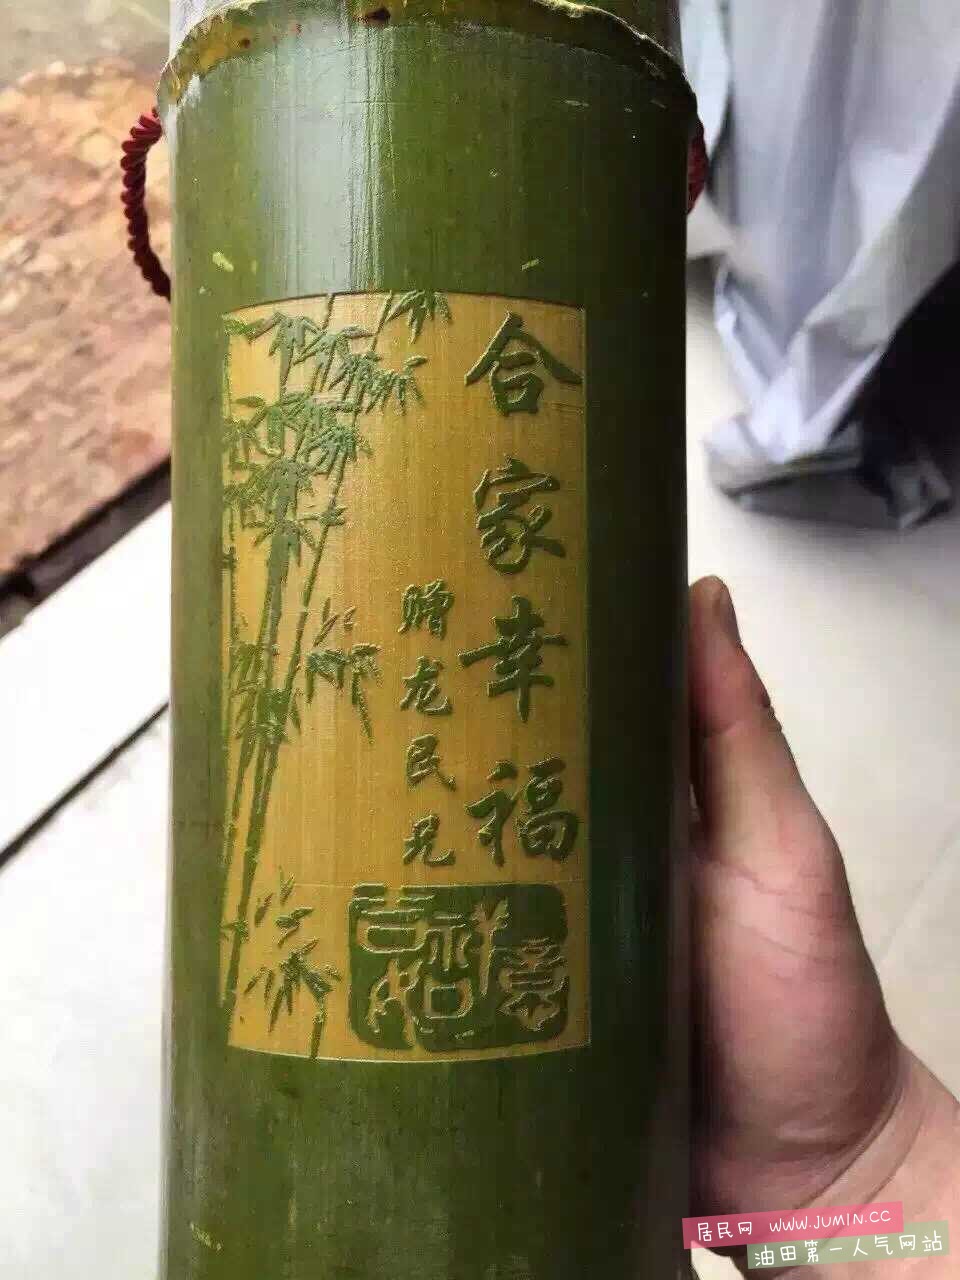 合家幸福
赠龙民兄
居民网 WWW.JUMIN.CC
油田第一人气网站